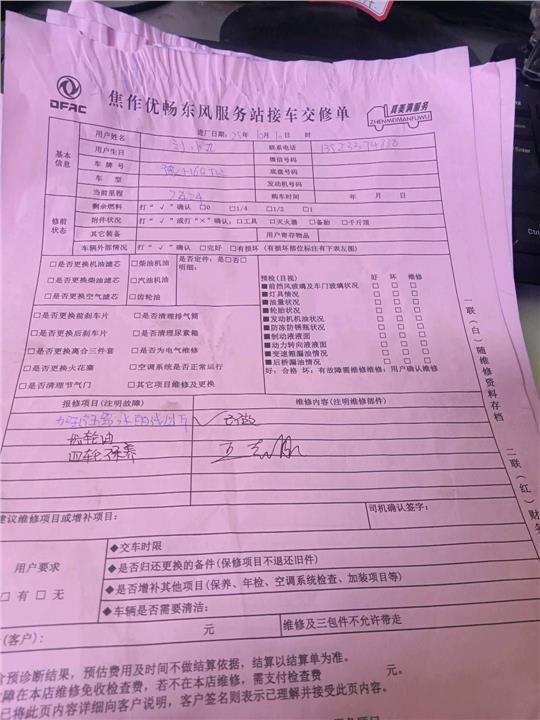 DFAC
焦作优畅东风服务站接车交修单
真美满服务
ZHENMEIMANFUWU
用户姓名 进厂日期：25年10月10日 时
基本信息
用户生日 联系电话
车牌号 微信号码
车型 底盘号码
发动机号码
当前里程 7424 购车时间 年 月 日
修前状态
剩余燃料 打“√”确认 □0 □1/4 □1/2 □1
附件状况 打“√”或打“×”确认：□工具 □灭火器 □备胎 □千斤顶
其它装备 用户寄存物品
车辆外部情况 打“√”确认 □完好 □有损坏（有损坏部位标注有下表左图）
□是否更换机油滤芯 □柴油机油 是否定件：是□否□
明细：
□是否更换柴油滤芯 □汽油机油
□是否更换空气滤芯 □齿轮油
预检(目视) 好 坏 维修
■前挡风玻璃及车门玻璃状况 □ □ □
■灯具情况 □ □ □
■油量状况 □ □ □
■轮胎状况 □ □ □
■发动机机油状况 □ □ □
■防冻防锈瓶状况 □ □ □
■制动液液面 □ □ □
■动力转向液液面 □ □ □
■变速箱漏油情况 □ □ □
■后桥漏油情况 □ □ □
好：合格 坏：有故障需维修维修：用户确认维修
□是否更换前刹车片 □是否清理排气筒
□是否更换后刹车片 □是否清理尿素箱
□是否更换离合三件套 □是否为电气维修
□是否更换火花塞 □空调系统是否正常运行
□是否清理节气门 □其它项目维修及更换
报修项目(注明故障) 维修内容(注明维修部件)
齿轮油
四轮保养
建议维修项目或增补项目：
司机确认签字：
用户要求
□有□无
◆交车时限
◆是否归还更换的备件(保修项目不退还旧件)
◆是否增补其他项目(保养、年检、空调系统检查、加装项目等)
◆车辆是否需要清洁：
(客户)： 元 维修及三包件不允许带走
预诊断结果，预估费用及时间不做结算依据，结算以结算单为准。
障在本店维修免收检查费，若不在本店维修，需支付检查费 元。
已将此页内容详细向客户说明，客户签名则表示已理解并接受此页内容。
一联(白)随维修资料存档
二联(红)财